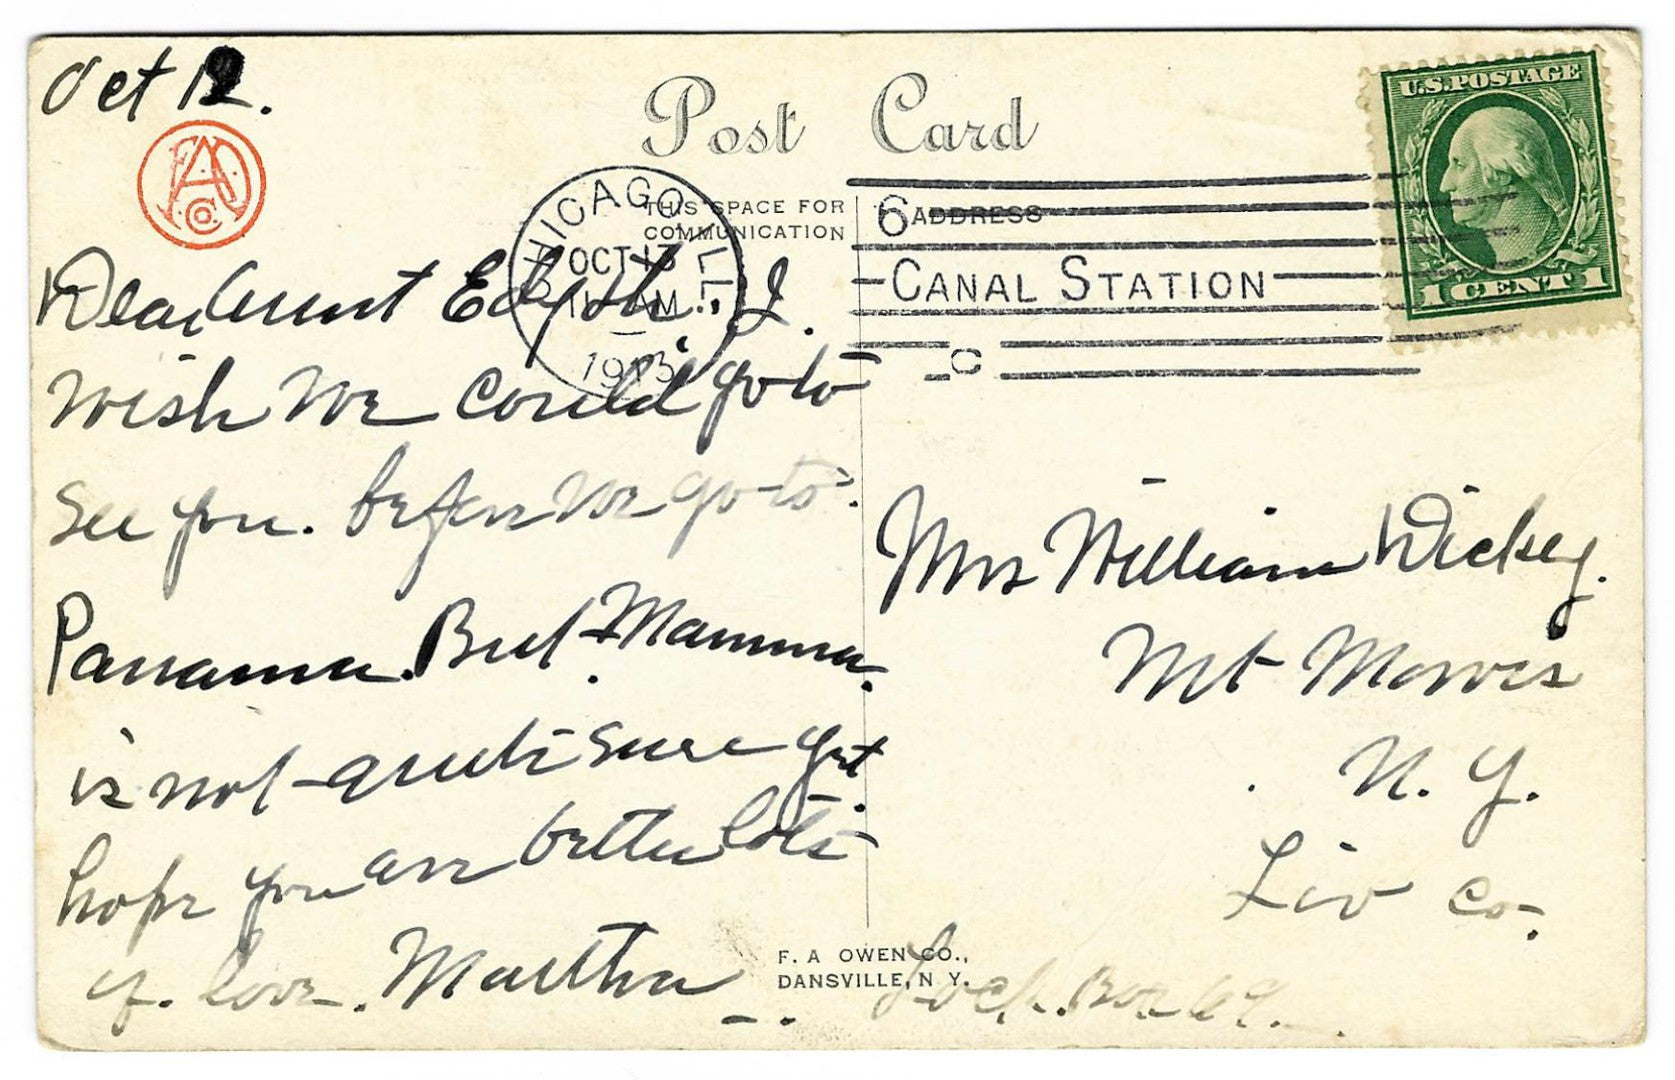 Oct 12.
Post Card
THIS SPACE FOR
COMMUNICATION
ADDRESS
CHICAGO, ILL.
OCT 13
AM
1913
6
CANAL STATION
C
U.S. POSTAGE
1 CENT 1
Dear Aunt Edyth. I.
wish we could go to
see you. before we go to.
Panama. But Mamma.
is not quite sure yet.
hope you are better lots
of. love. Martha
Mrs William Dickey.
Mt Morris
N. Y.
Liv Co.
Lock. Box 69.
F. A OWEN CO.,
DANSVILLE, N Y.